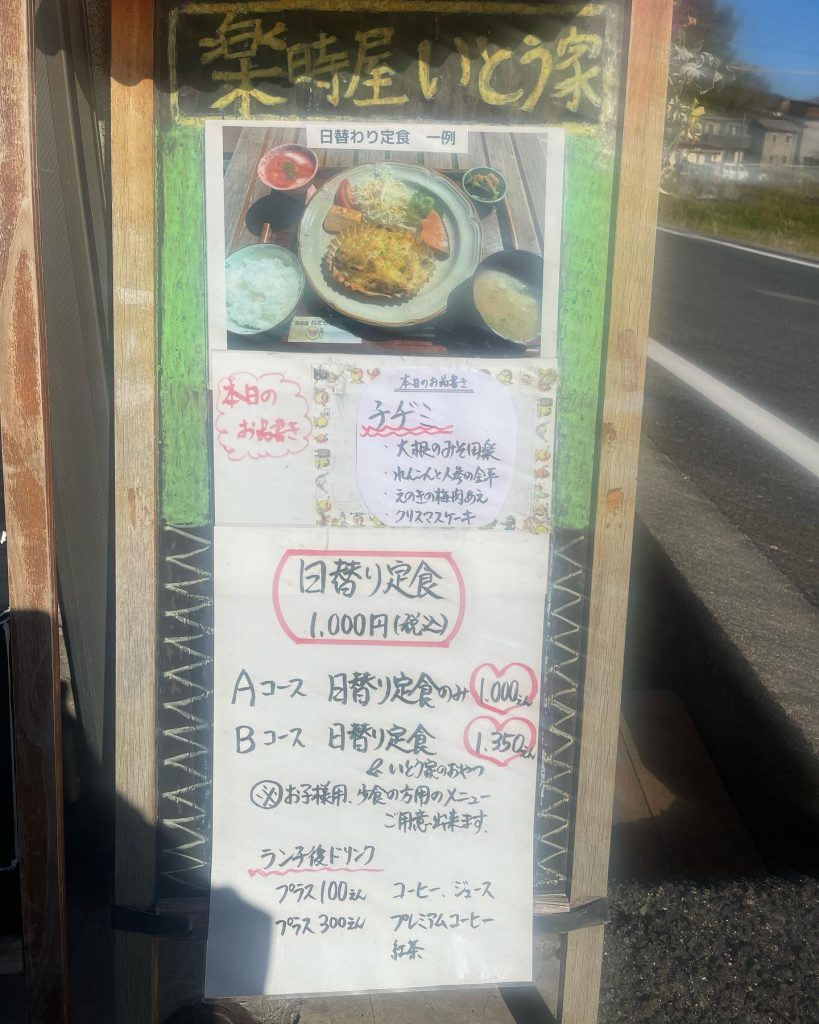 楽時屋 いとう家
日替わり定食 一例
本日の
お品書き
本日のお品書き
チヂミ
・大根のみそ田楽
・れんこんと人参の金平
・えのきの梅肉あえ
・クリスマスケーキ
日替り定食
1,000円(税込)
Aコース 日替り定食のみ 1.000えん
Bコース 日替り定食 1.350えん
& いとう家のおやつ
※お子様用、少食の方用のメニュー
ご用意出来ます。
ランチ後ドリンク
プラス100えん コーヒー、ジュース
プラス300えん プレミアムコーヒー
紅茶